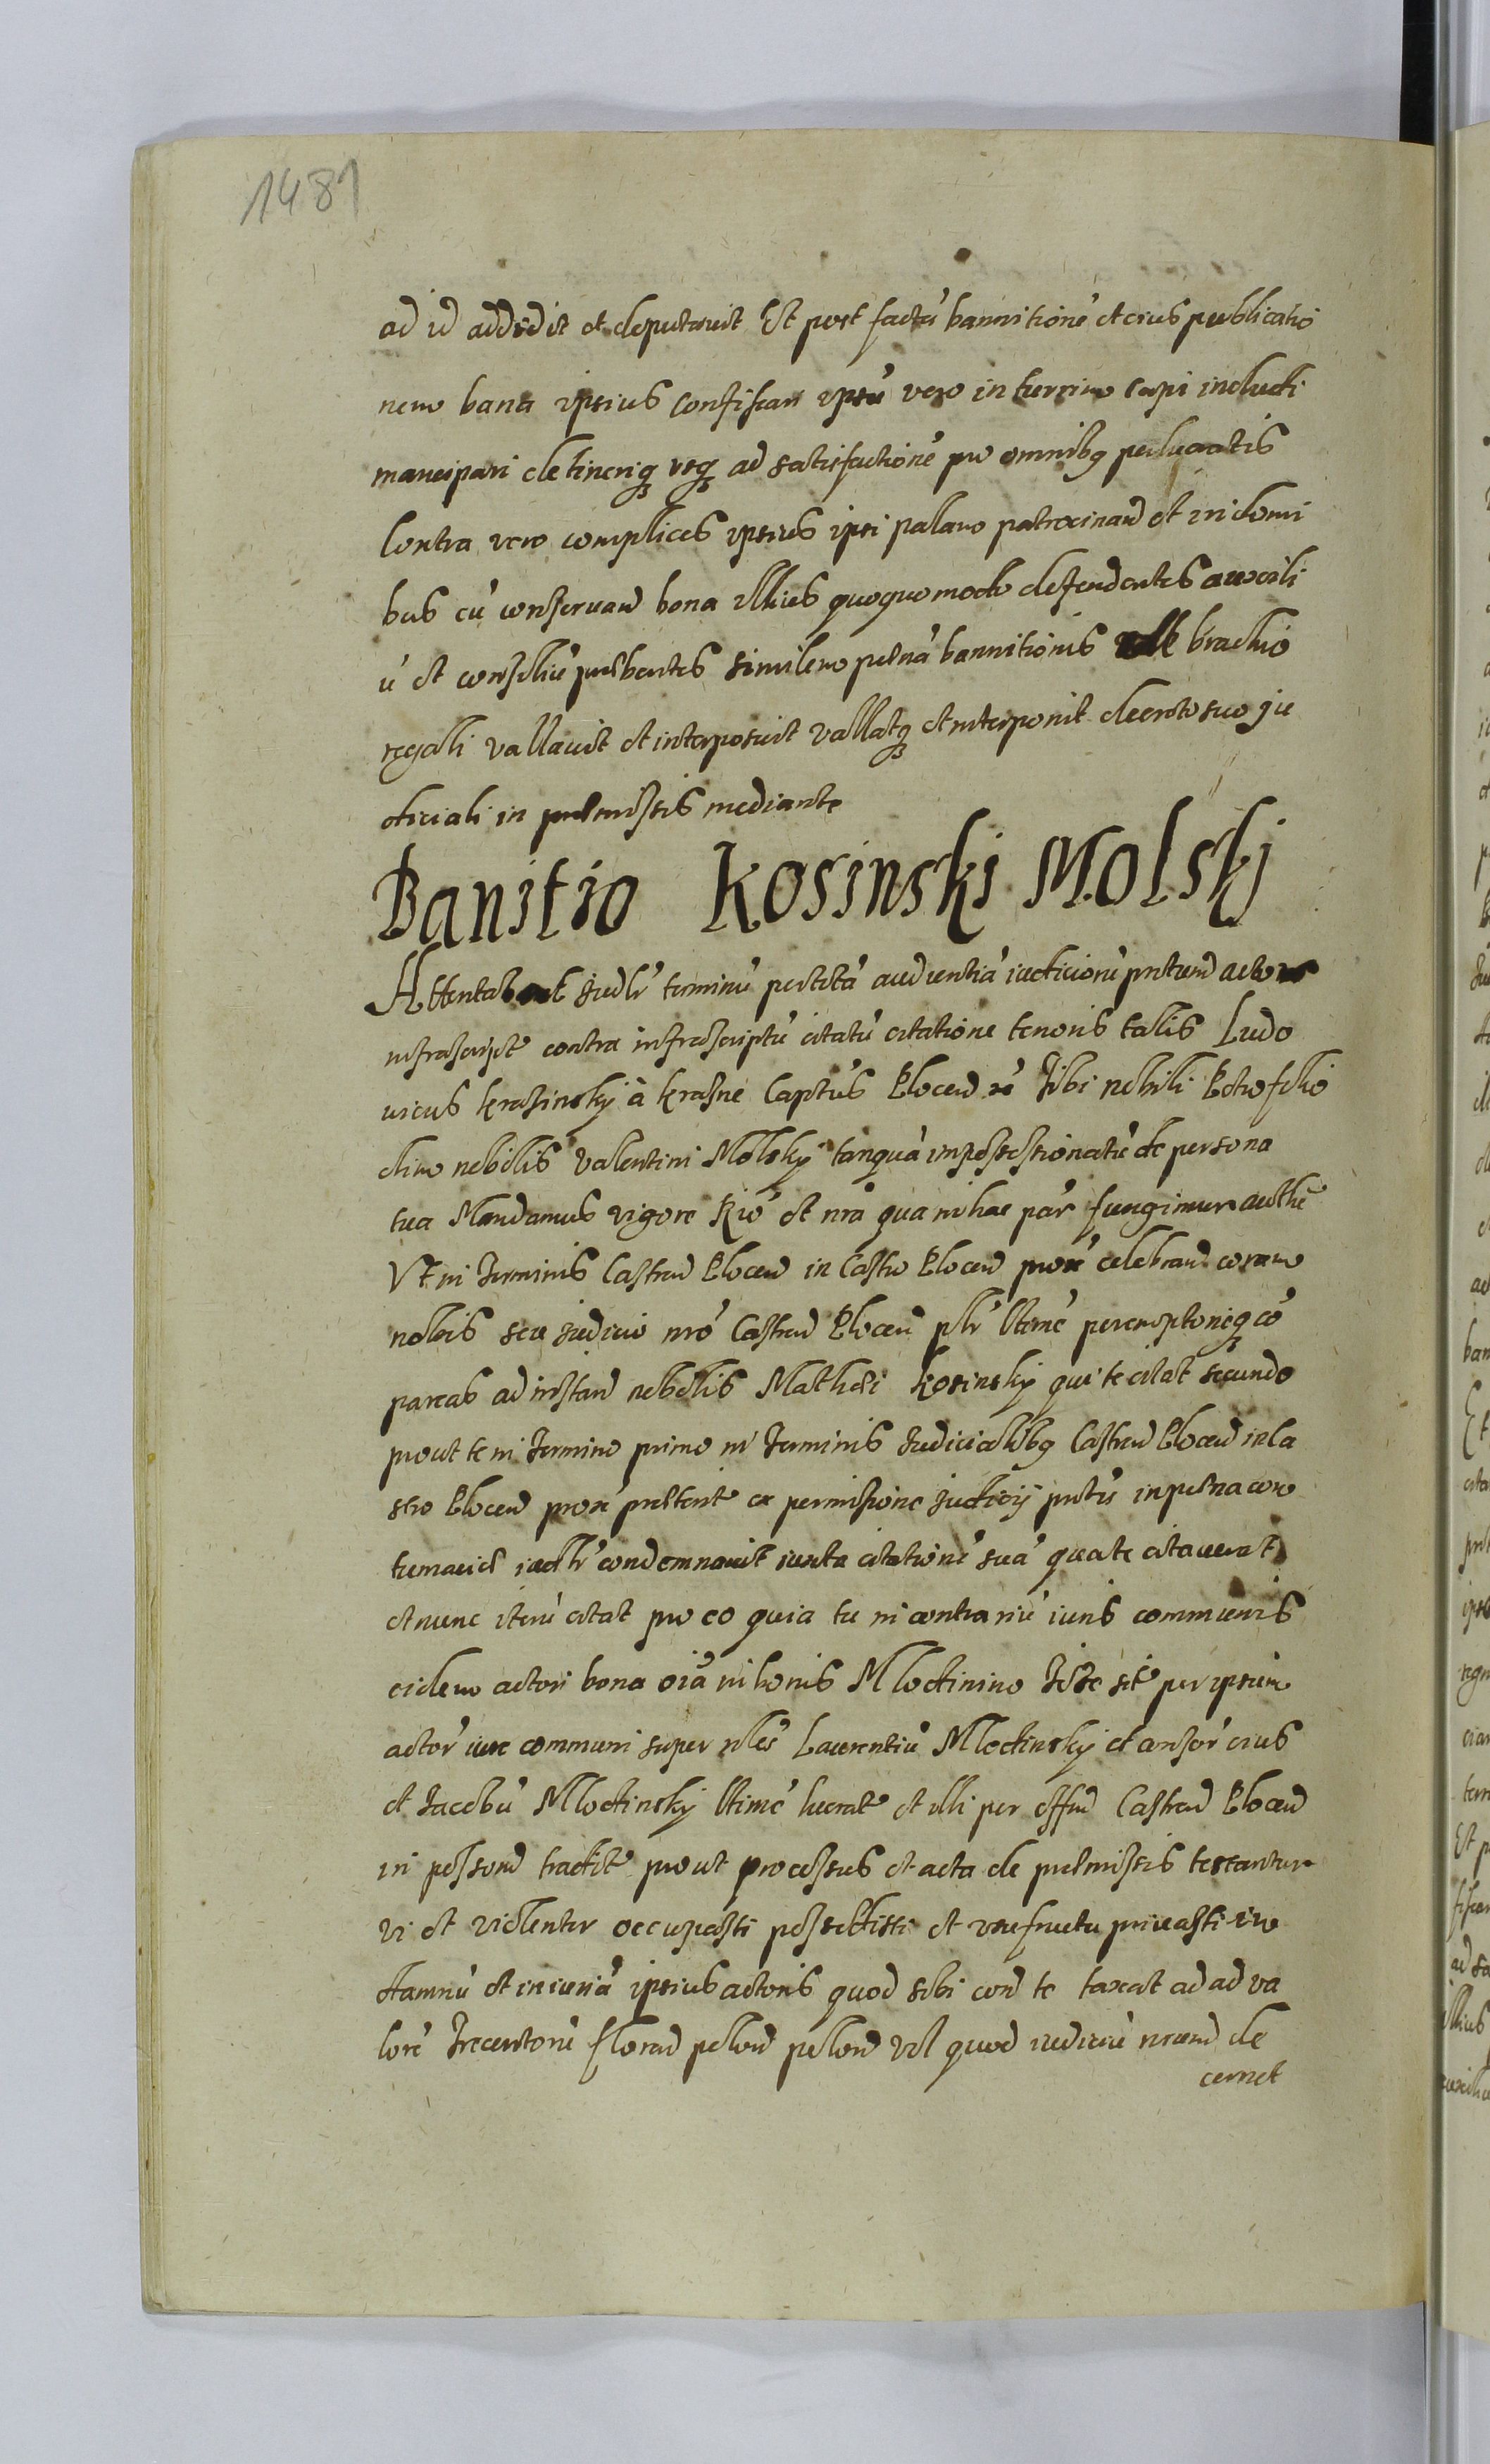 1481
ad id addidit et deputavit Et post factā bannitionē et eius publicatio
nem bana ipsius confiscari ipsū vero in turrim capi includi
mancipari detineriq usq ad satisfactionē pro omnibq perlucratis
Contra vero complices ipsius ipsi palam patrocinan et in domi
bus cū conservan bona illius quoquomodo defendentes auxili
ū et consiliū prebentes similem penā bannitionis brachio
regali vallavit et interposuit vallatq et interponit decreto suo ju
diciali in premissis mediante
Banitio Kosinski Molskj
Attentab Judlr terminū pectitā audientiā iudiciorū pntand actore
infrascript contra infrascriptū citatū citatione tenoris talis Ludo
vicus Krasinsky à Krasne Captus Plocen Tibi nobili Petro filio
olim nobilis Valentini Molsky tanquā impossessionatū de persona
tua Mandamus vigore Rió et nrā qua in hac par fungimur authē
Ut in Terminis Castren Plocen in Castro Plocen prox celebrand coram
nobis seu Judicio nró Castren Plocen plr ltimē peremptorieq cō
pareas ad instan nobilis Mathei Kosinsky qui te citat secundo
prout te in Termino primo in Terminis Judicialibq Castren Plocen in Ca
stro Plocen prox preterit ex permissione Judicij pntis in pena con
tumaciæ iudlr condemnavit iuxta citationē suā qua te citaverat
et nunc iterū citat pro eo quia tu in contrariū iuris communis
eidem actori bona oiā in bonis Mlodinino sit per ipsum
actor iure communi super nles Laurentiū Mlodinsky et consor eius
et Jacobū Mlodinsky ltimē lucrat et illi per offm Castren Plocen
in possend tradit prout processus et acta de premissis testantur
vi et violenter occupasti possedisti et usufructu privasti in
damnū et iniuriā ipsius actoris quod sibi con te taxat ad ad va
lorē Trecentorū floren polon polon vel quod iudiciū decer
cernet